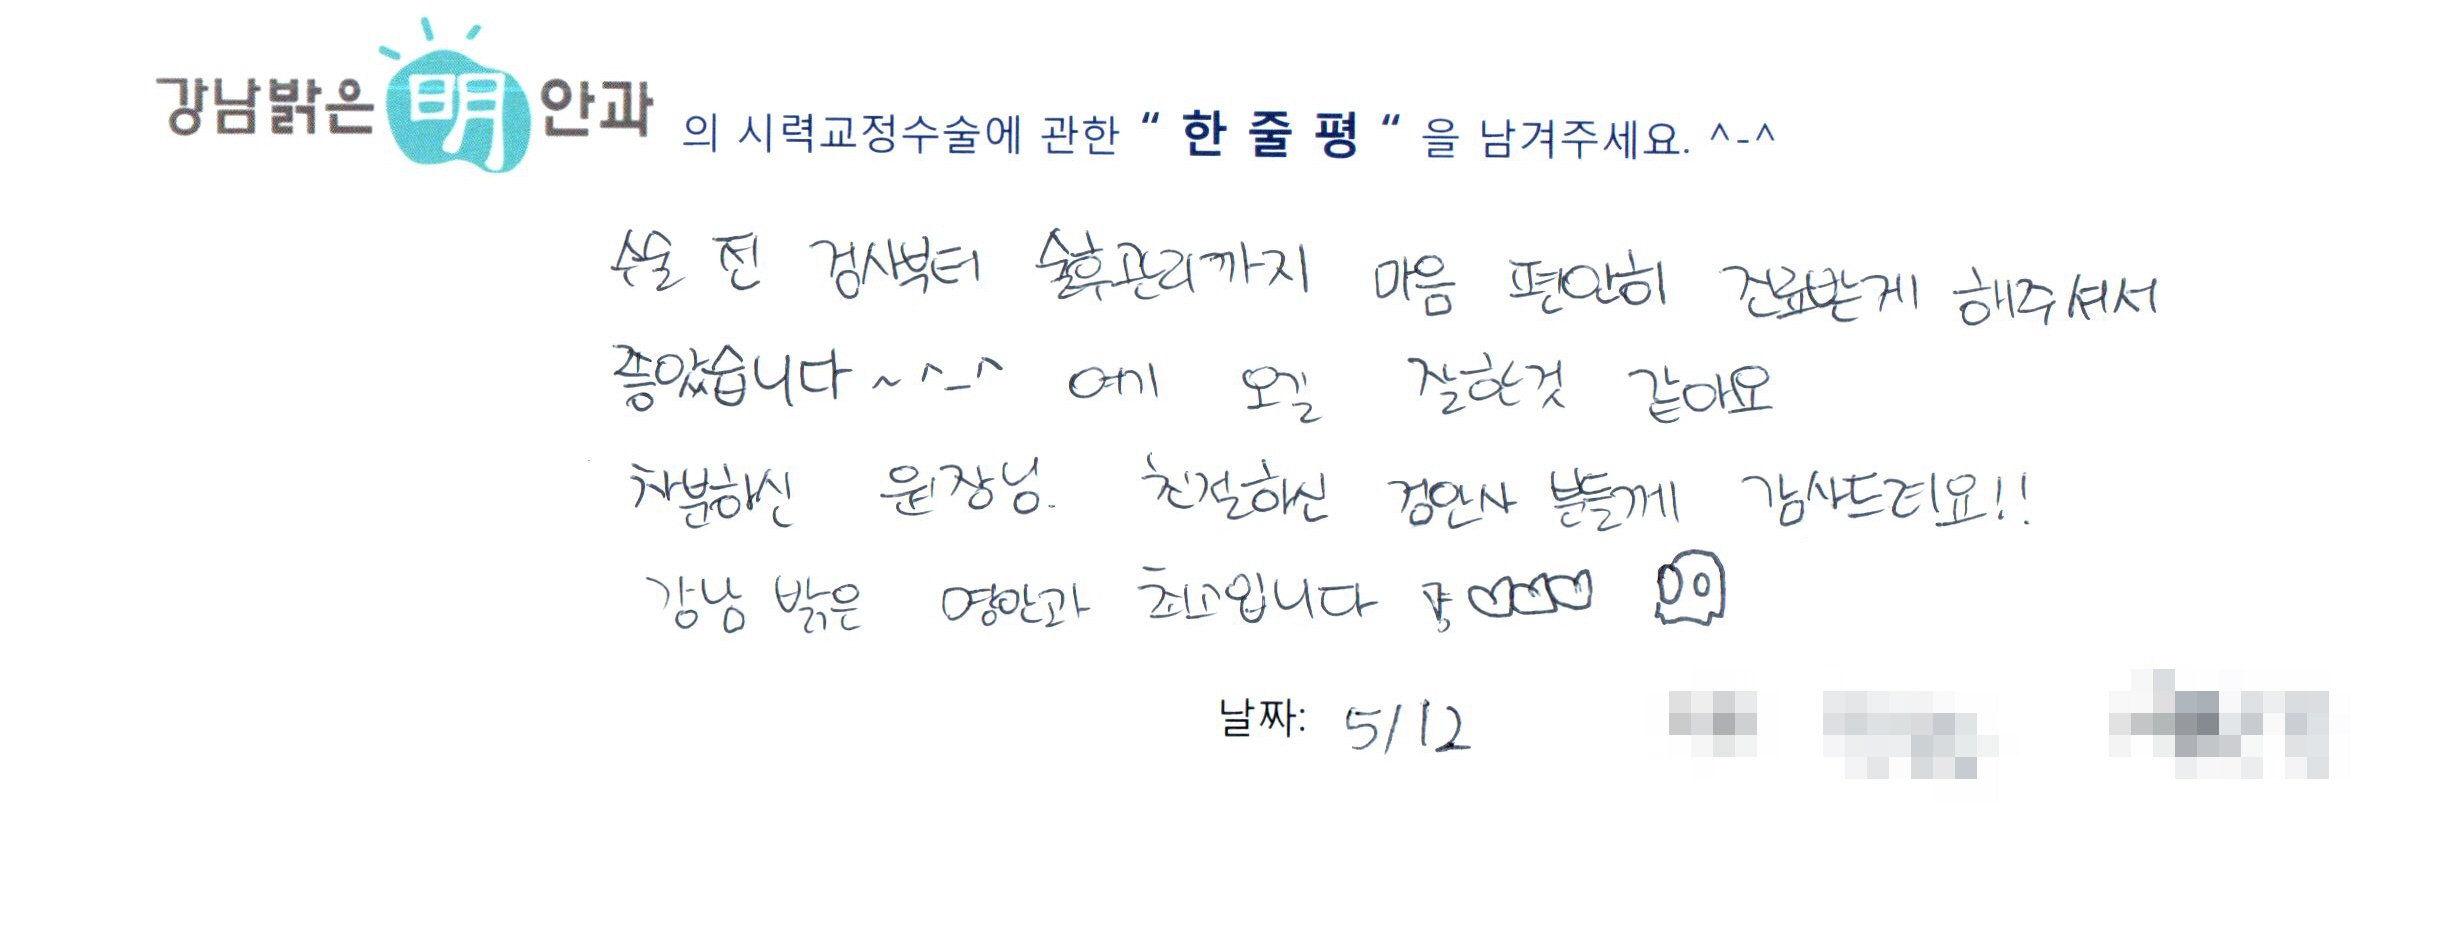 강남밝은明안과 의 시력교정수술에 관한 “ 한 줄 평 “ 을 남겨주세요. ^-^
수술 전 검사부터 술후관리까지 마음 편안히 진료받게 해주셔서
좋았습니다~^_^ 여기 오길 잘한것 같아요
차분하신 원장님. 친절하신 검안사 분들께 감사드려요!!
강남 밝은 명안과 최고입니다
날짜: 5/12